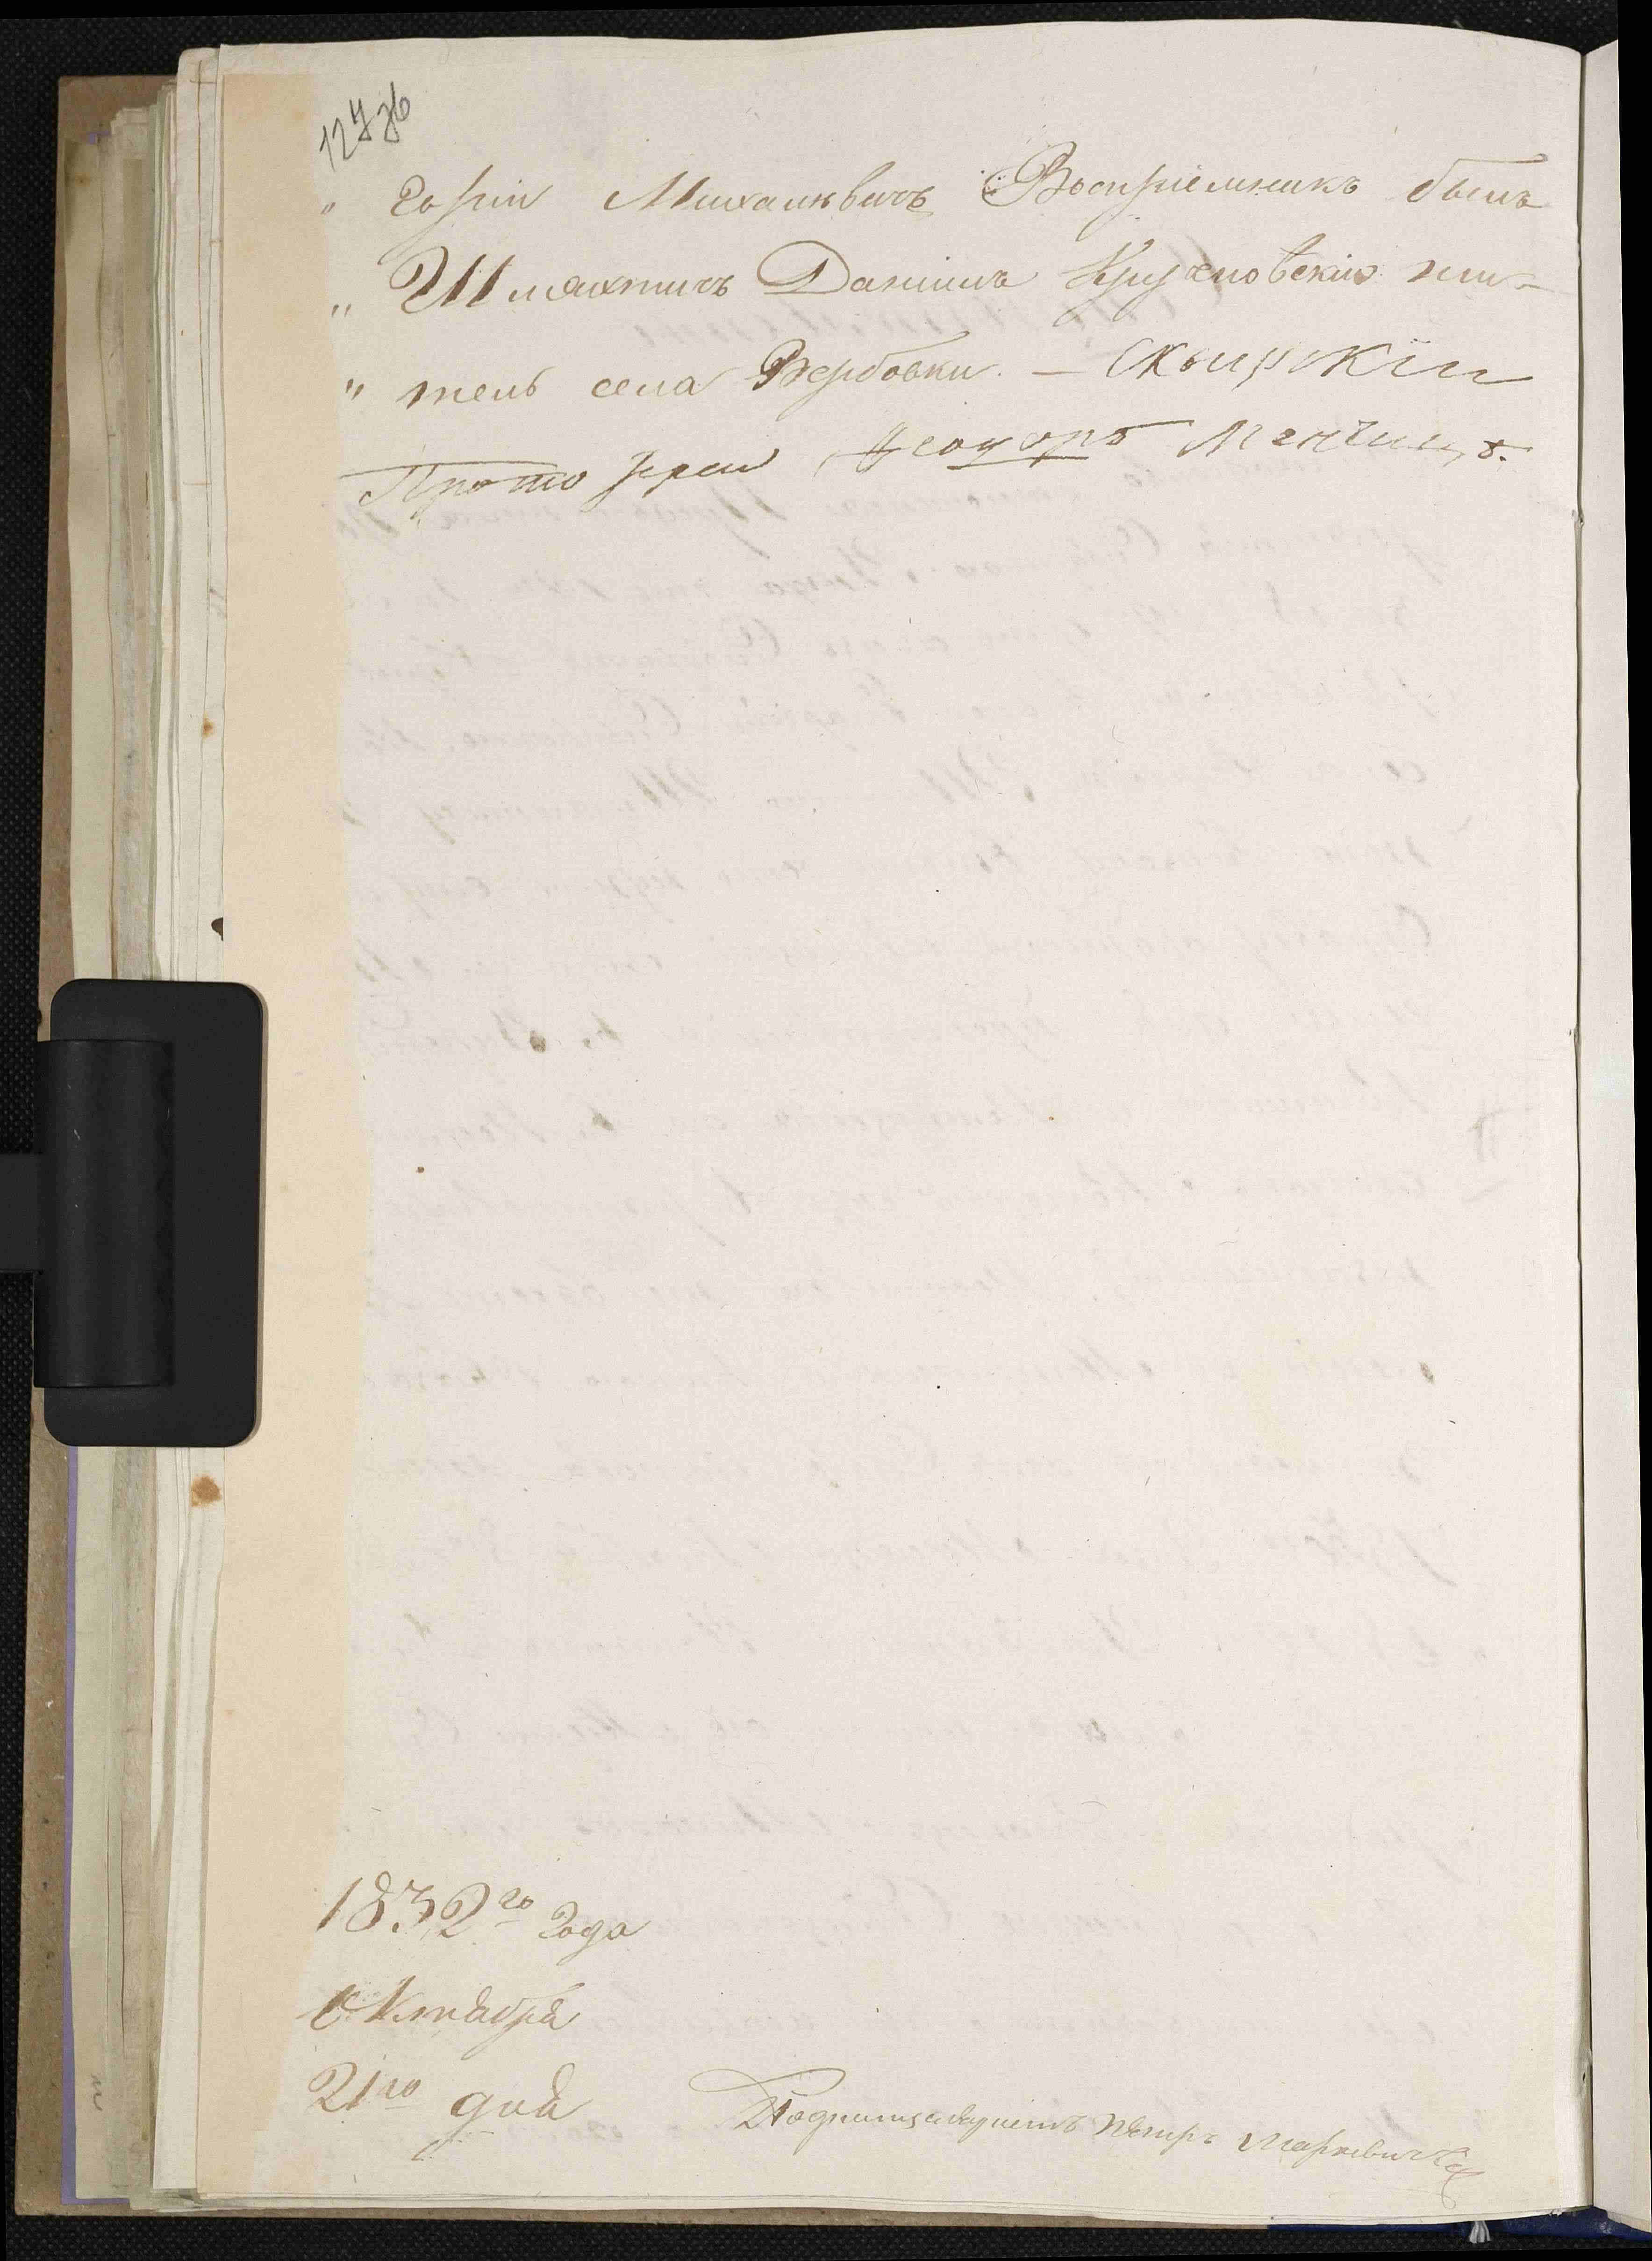 127 зв
" горій Михалѣвичъ Воспріемникъ былъ
" Шляхтичъ Даніилъ Кручковскій жи-
" тель села Вербовки. — Сквирскій
Протоіерей Ѳеодоръ Менчицъ.
1832го года
Октября
21го дня
Подканцеляристъ Петръ Маркевичъ